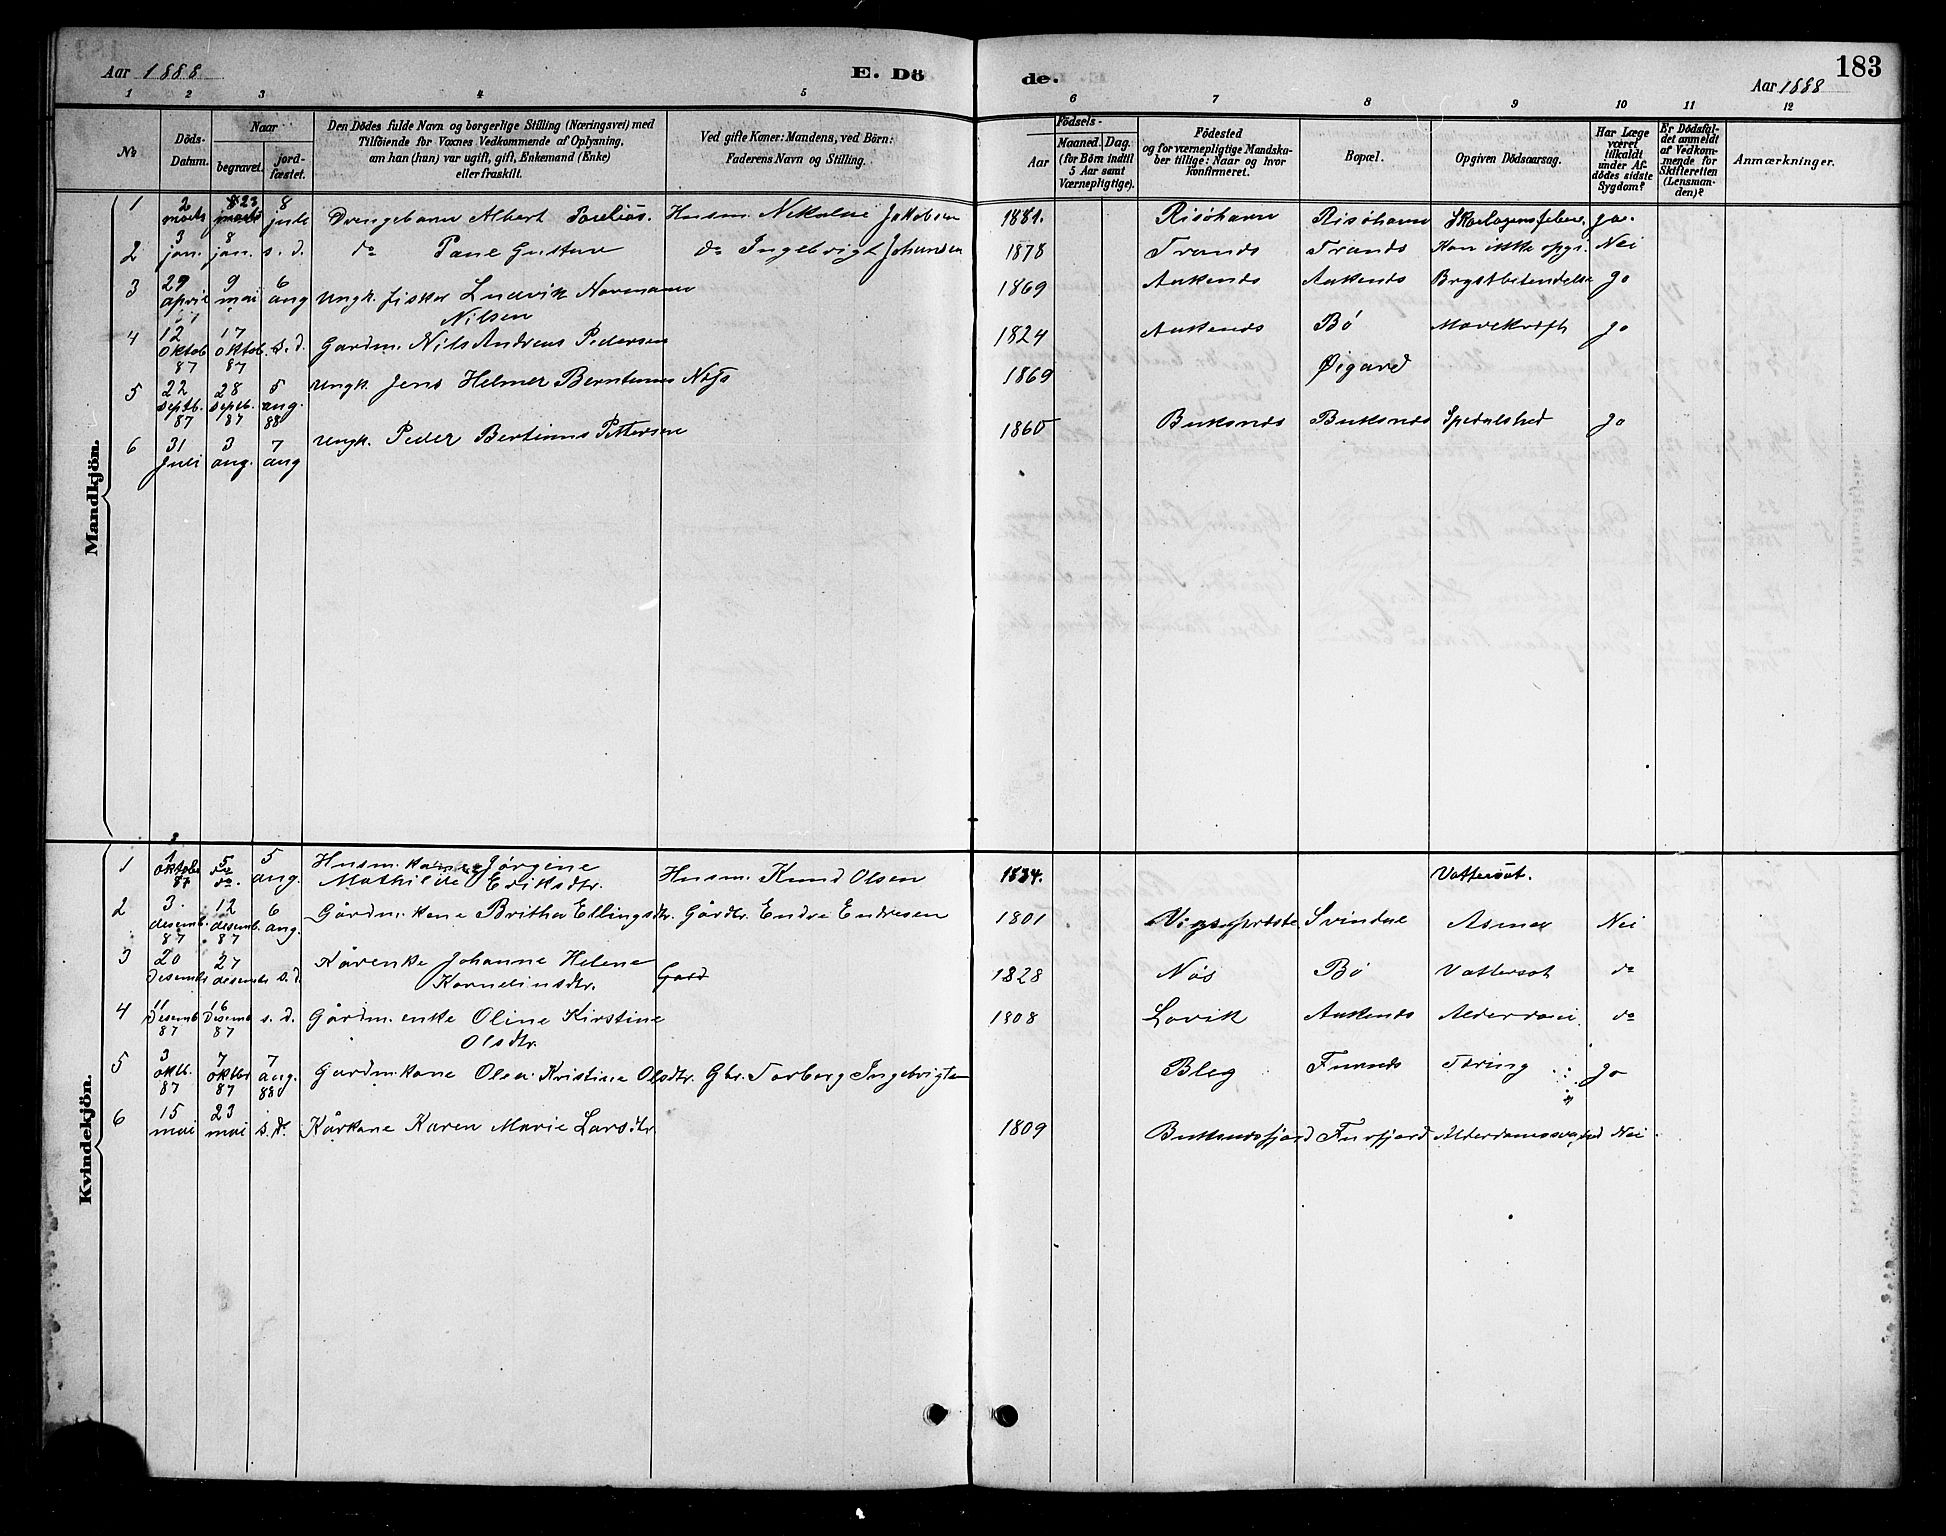 Aar 1888
E. Dö
de.
183
Aar 1888
1 2 3 4 5 6 7 8 9 10 11 12
№
Döds-Datum.
Naar
begravet.
jord-fæstet.
Den Dödes fulde Navn og borgerlige Stilling (Næringsvei) med
Tilföiende for Voxnes Vedkommende af Oplysning,
om han (hun) var ugift, gift, Enkemand (Enke)
eller fraskilt.
Ved gifte Koner: Mandens, ved Börn:
Faderens Navn og Stilling.
Födsels-
Aar
Maaned. Dag.
(for Börn indtil
5 Aar samt
Værnepligtige).
Födested
og for værnepligtige Mandska-
ber tillige: Naar og hvor
konfirmeret.
Bopæl.
Opgiven Dödsaarsag.
Har Læge
været
tilkaldt
under Af-
dödes sidste
Sygdom?
Er Dödsfal-
det anmeldt
af Vedkom-
mende for
Skifteretten
(Lensman-
den)?
Anmærkninger.
Mandkjön.
1 2 marts 23 8 juli Drengebarn Albert Husm. Nikolai Jakobsen 1881. Risöhavn Risöhavn Skarlagensfeber ja.
2 3 jan. 8 jan. s. d. do Gustav do Ingebrigt Johansen 1878 Trands Trands Kan ikke opgi. Nei
3 29 april 87 9 mai 6 aug Ungk. fisker Ludvik Normann
Nilsen 1869 Aakenes Aakenes Brystbetendelse Jo
4 12 oktob. 87 17 oktob. 87 s. d. Gardm. Nils Andreas Pedersen 1824 Aakenes Bö Mavekræft Jo
5 22 septb. 87 28 septb. 87 5 aug. 88 Ungk. Jens Helmer Berntinus Nøss 1869 Øigard
6 31 Juli 3 aug. 7 aug Ungk. Peder Bertinus Pettersen 1860 Buksnes Buksnes Spedalshed Jo
Kvindekjön.
1 1 oktober 87 5 do do. 5 aug. Husm. kone Jørgine
Mathilde Eriksdtr. Husm. Knud Olsen 1834. Vattersot.
2 3 desemb. 87 12 desemb. 87 6 aug. Gårdm. kone Britha Ellingsdtr. Gårdbr. Endre Endresen 1801 Svindal Asmer Nei
3 20 Desemb 27 desemb s. d. Kårenke Johanne Helene
Kornelinsdtr. Gård 1828 Nøs Bö Vattersot do
4 11 Desemb 87 16 Desemb 87 s. d. Gårdm. enke Oline Kirstine
Olsdtr. 1808 Lovik Aakenes Alderdom. do
5 3 oktb. 87 7 oktbr 87 7 aug. 88 Gardm. kone Olsa Kristine Olsdtr. Gbr. Torberg Ingebrigts Bleg Tæring Jo
6 15 mai 23 mai s. d. Kårkone Karen Marie Larsdtr. 1809 Buksnesfjord Furfjord Alderdomssvaghed Nei